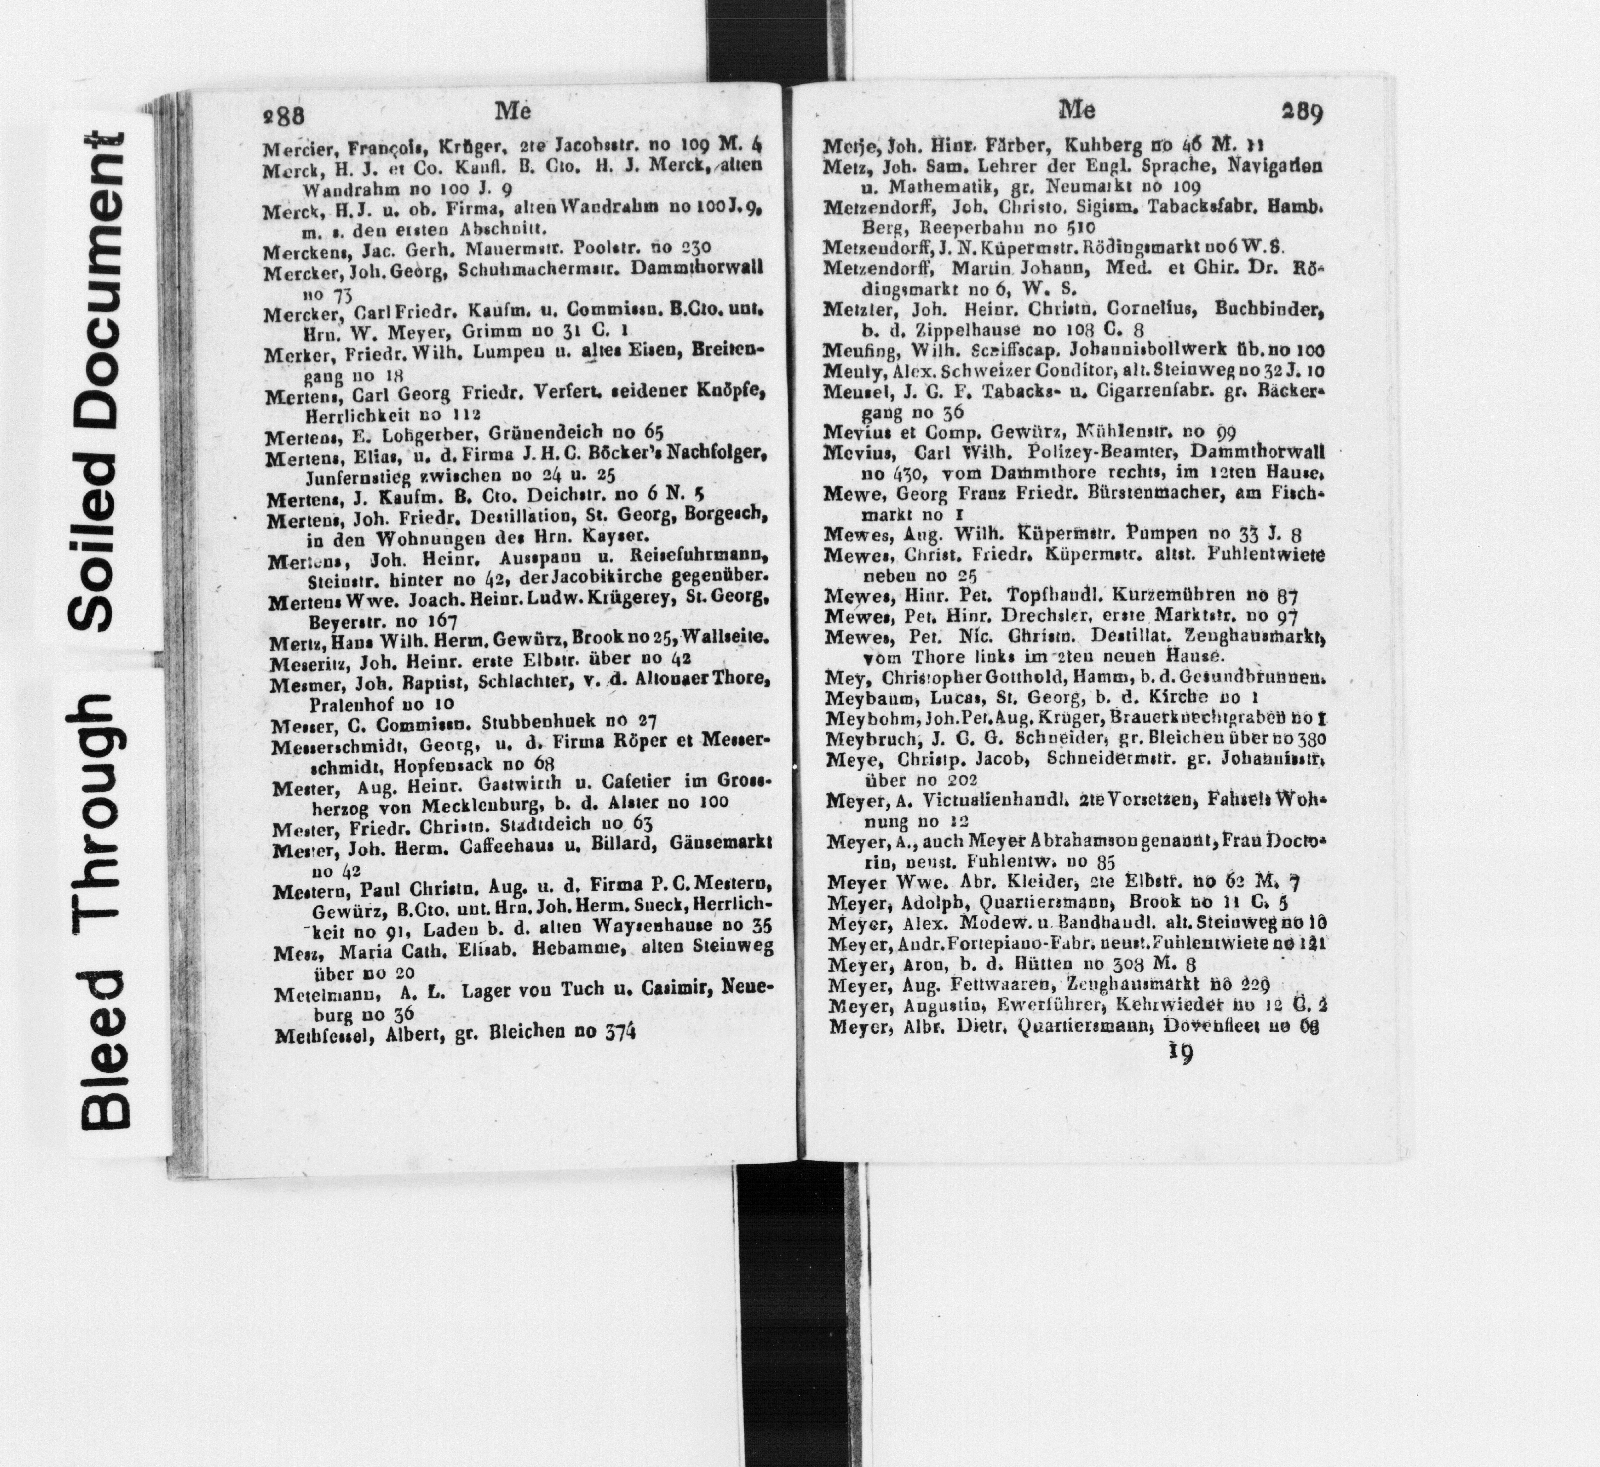 Bleed Through Soiled Document
288 Me
Mercier, François, Krüger, 2te Jacobsstr. no 109 M. 4
Merck, H. J. et Co. Kaufl. B. Cto. H. J. Merck, alten
Wandrahm no 100 J. 9
Merck, H. J. u. ob. Firma, alten Wandrahm no 100 J. 9,
m. s. den ersten Abschnitt.
Merckens, Jac. Gerh. Mauermstr. Poolstr. no 230
Mercker, Joh. Georg, Schuhmachermstr. Dammthorwall
no 73
Mercker, Carl Friedr. Kaufm. u. Commissn. B.Cto. unt.
Hrn. W. Meyer, Grimm no 31 C. 1
Merker, Friedr. Wilh. Lumpen u. altes Eisen, Breiten-
gang no 18
Mertens, Carl Georg Friedr. Verfert. seidener Knöpfe,
Herrlichkeit no 112
Mertens, E. Lohgerber, Grünendeich no 65
Mertens, Elias, u. d. Firma J. H. C. Böcker's Nachfolger,
Junfernstieg zwischen no 24 u. 25
Mertens, J. Kaufm. B. Cto. Deichstr. no 6 N. 5
Mertens, Joh. Friedr. Destillation, St. Georg, Borgesch,
in den Wohnungen des Hrn. Kayser.
Mertens, Joh. Heinr. Ausspann u. Reisefuhrmann,
Steinstr. hinter no 42, der Jacobikirche gegenüber.
Mertens Wwe. Joach. Heinr. Ludw. Krügerey, St. Georg,
Beyerstr. no 167
Mertz, Hans Wilh. Herm. Gewürz, Brook no 25, Wallseite.
Meseritz, Joh. Heinr. erste Elbstr. über no 42
Mesmer, Joh. Baptist, Schlachter, v. d. Altonaer Thore,
Pralenhof no 10
Messer, C. Commissn. Stubbenhuek no 27
Messerschmidt, Georg, u. d. Firma Röper et Messer-
schmidt, Hopfensack no 68
Mester, Aug. Heinr. Gastwirth u. Cafetier im Gross-
herzog von Mecklenburg, b. d. Alster no 100
Mester, Friedr. Christn. Stadtdeich no 63
Mester, Joh. Herm. Caffeehaus u. Billard, Gänsemarkt
no 42
Mestern, Paul Christn. Aug. u. d. Firma P. C. Mestern,
Gewürz, B.Cto. unt. Hrn. Joh. Herm. Sueck, Herrlich-
keit no 91, Laden b. d. alten Waysenhause no 35
Mesz, Maria Cath. Elisab. Hebamme, alten Steinweg
über no 20
Metelmann, A. L. Lager von Tuch u. Casimir, Neue-
burg no 36
Methfessel, Albert, gr. Bleichen no 374
Me 289
Metje, Joh. Hinr. Färber, Kuhberg no 46 M. 11
Metz, Joh. Sam. Lehrer der Engl. Sprache, Navigation
u. Mathematik, gr. Neumarkt no 109
Metzendorff, Joh. Christo. Sigism. Tabacksfabr. Hamb.
Berg, Reeperbahn no 510
Metzendorff, J. N. Küpermstr. Rödingsmarkt no 6 W. S.
Metzendorff, Martin Johann, Med. et Chir. Dr. Rö-
dingsmarkt no 6, W. S.
Metzler, Joh. Heinr. Christn. Cornelius, Buchbinder,
b. d. Zippelhause no 108 C. 8
Meufing, Wilh. Schiffscap. Johannisbollwerk üb. no 100
Meuly, Alex. Schweizer Conditor, alt. Steinweg no 32 J. 10
Meusel, J. C. F. Tabacks- u. Cigarrenfabr. gr. Bäcker-
gang no 36
Mevius et Comp. Gewürz, Mühlenstr. no 99
Mevius, Carl Wilh. Polizey-Beamter, Dammthorwall
no 430, vom Dammthore rechts, im 12ten Hause.
Mewe, Georg Franz Friedr. Bürstenmacher, am Fisch-
markt no 1
Mewes, Aug. Wilh. Küpermstr. Pumpen no 33 J. 8
Mewes, Christ. Friedr. Küpermstr. altst. Fuhlentwiete
neben no 25
Mewes, Hinr. Pet. Topfhandl. Kurzemühren no 87
Mewes, Pet. Hinr. Drechsler, erste Marktstr. no 97
Mewes, Pet. Nic. Christn. Destillat. Zeughausmarkt,
vom Thore links im 2ten neuen Hause.
Mey, Christopher Gotthold, Hamm, b. d. Gesundbrunnen.
Meybaum, Lucas, St. Georg, b. d. Kirche no 1
Meybohm, Joh. Pet. Aug. Krüger, Brauerknechtgraben no 1
Meybruch, J. C. G. Schneider, gr. Bleichen über no 380
Meye, Christp. Jacob, Schneidermstr. gr. Johannisstr.
über no 202
Meyer, A. Victualienhandl. 2te Vorsetzen, Fahsels Woh-
nung no 12
Meyer, A., auch Meyer Abrahamson genannt, Frau Docto-
rin, neust. Fuhlentw. no 85
Meyer Wwe. Abr. Kleider, 2te Elbstr. no 62 M. 7
Meyer, Adolph, Quartiersmann, Brook no 11 C. 5
Meyer, Alex. Modew. u. Bandhandl. alt. Steinweg no 18
Meyer, Andr. Fortepiano-Fabr. neust. Fuhlentwiete no 121
Meyer, Aron, b. d. Hütten no 308 M. 8
Meyer, Aug. Fettwaaren, Zeughausmarkt no 229
Meyer, Augustin, Ewerführer, Kehrwieder no 12 C. 2
Meyer, Albr. Dietr. Quartiersmann, Dovenfleet no 68
19